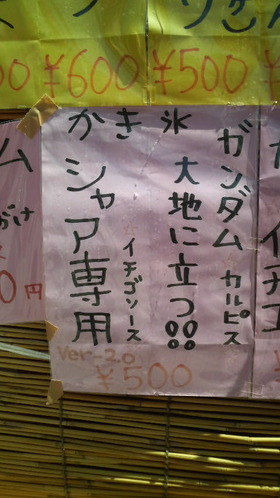 ¥600
¥500
かき氷
ガンダム カルピス
大地に立つ!!
シャア専用
イチゴソース
Ver-2.0
¥500
ム
0円
か